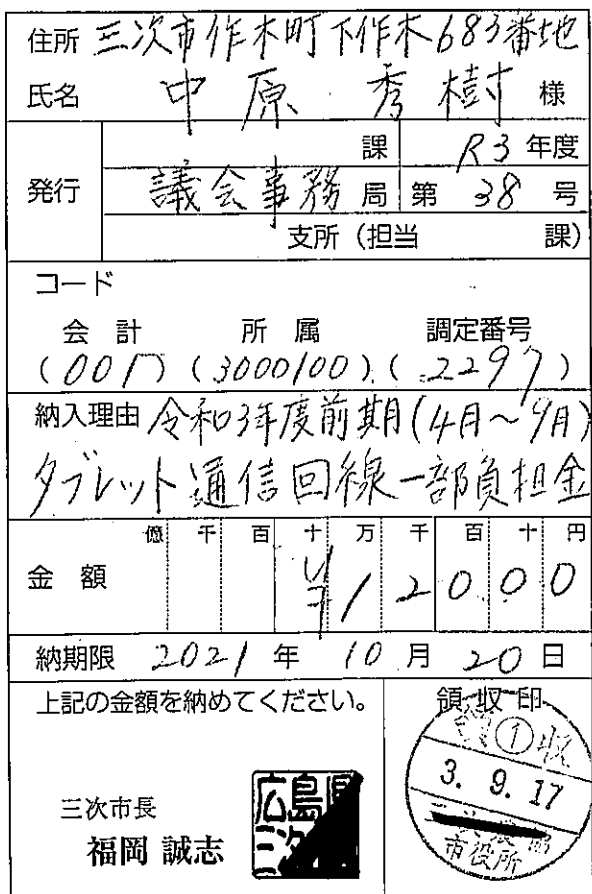 住所 三次市作木町下作木683番地
氏名 中原 秀樹 様
発行
課 R3年度
議会事務局 第38号
支所(担当 課)
コード
会計 所属 調定番号
(001) (3000100) (2297)
納入理由 令和3年度前期(4月~9月)
タブレット通信回線一部負担金
億 千 百 十 万 千 百 十 円
金額 ¥12000
納期限 2021年10月20日
上記の金額を納めてください。
三次市長
福岡 誠志
領収印
領①収
3. 9. 17
市役所
広島県
三次